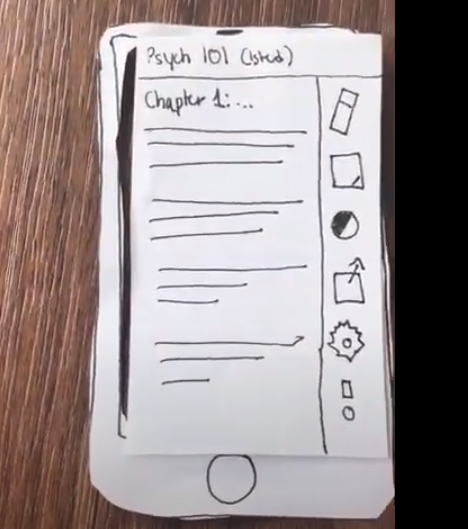 Psych 101 (1sted)
Chapter 1:...